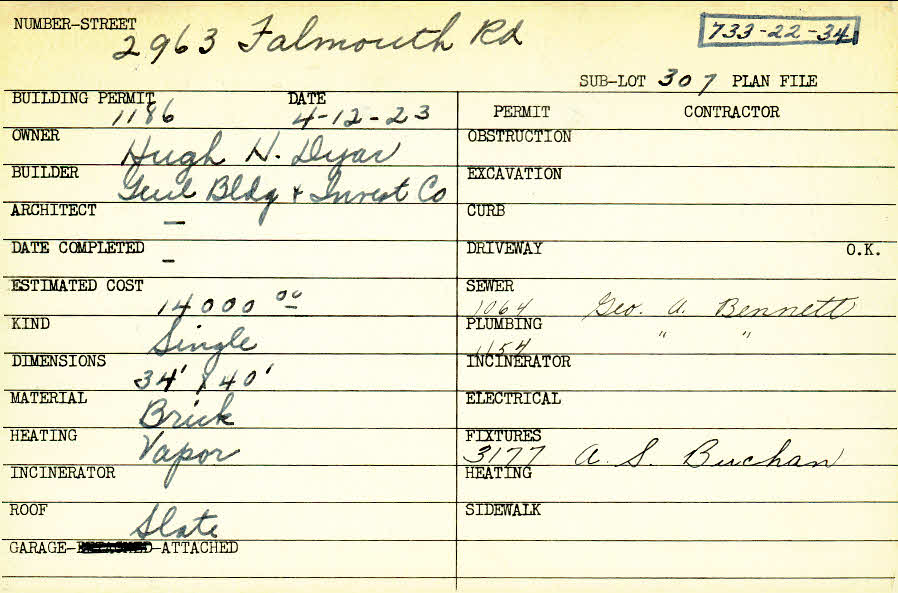 NUMBER-STREET
2963 Falmouth Rd
733-22-34
SUB-LOT 307 PLAN FILE
BUILDING PERMIT DATE
1186 4-12-23
OWNER
Hugh H. Dyar
BUILDER
Bldg & Invest Co
ARCHITECT
—
DATE COMPLETED
—
ESTIMATED COST
14000 00
KIND
Single
DIMENSIONS
34' x 40'
MATERIAL
Brick
HEATING
Vapor
INCINERATOR
ROOF
Slate
GARAGE- -ATTACHED
PERMIT CONTRACTOR
OBSTRUCTION
EXCAVATION
CURB
DRIVEWAY O.K.
SEWER
1064 Geo. A. Bennett
PLUMBING
1154 " "
INCINERATOR
ELECTRICAL
FIXTURES
3177 A. S. Buchan
HEATING
SIDEWALK